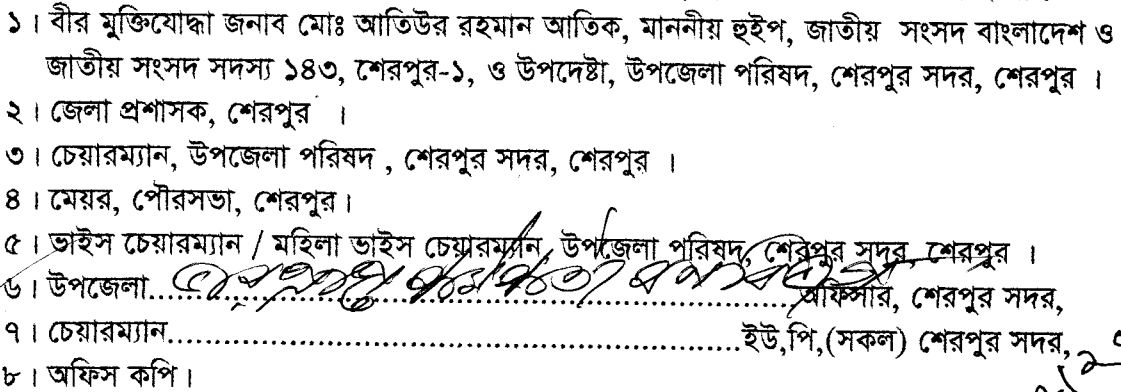 ১। বীর মুক্তিযোদ্ধা জনাব মোঃ আতিউর রহমান আতিক, মাননীয় হুইপ, জাতীয় সংসদ বাংলাদেশ ও
জাতীয় সংসদ সদস্য ১৪৩, শেরপুর-১, ও উপদেষ্টা, উপজেলা পরিষদ, শেরপুর সদর, শেরপুর ।
২। জেলা প্রশাসক, শেরপুর ।
৩। চেয়ারম্যান, উপজেলা পরিষদ , শেরপুর সদর, শেরপুর ।
৪। মেয়র, পৌরসভা, শেরপুর।
৫। ভাইস চেয়ারম্যান / মহিলা ভাইস চেয়ারম্যান, উপজেলা পরিষদ, শেরপুর সদর, শেরপুর ।
৬। উপজেলা.......................................................................অফিসার, শেরপুর সদর,
৭। চেয়ারম্যান.................................................................ইউ,পি,(সকল) শেরপুর সদর,
৮। অফিস কপি।